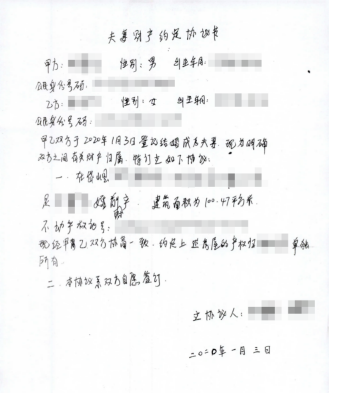 夫妻财产约定协议书
甲方: 性别: 男 出生年月:
公民身份号码:
乙方: 性别: 女 出生年月:
公民身份号码:
甲乙双方于2020年1月3日登记结婚成为夫妻. 现为明确
双方之间有关财产归属, 特订立如下协议:
一. 在贷
是 房产 建筑面积为100.47平方米.
不动产权证号:
现经甲乙双方协商一致, 约定上述房屋的产权归 单独
所有.
二. 本协议系双方自愿签订.
立协议人:
二〇二〇年一月三日